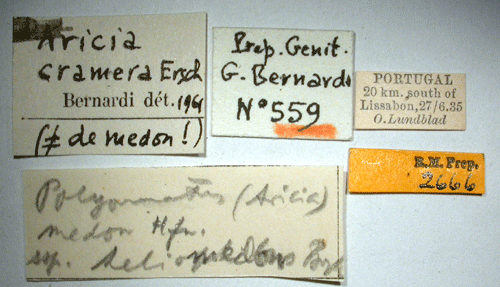 Aricia
cramera Ersch
Bernardi dét. 1961
(≠ de medon!)
Prep. Genit.
G. Bernardi
N° 559
PORTUGAL
20 km. south of
Lissabon, 27/6.35
O. Lundblad
R.M. Prep.
2666
Polyommatus (Aricia)
medon Hfn.
ssp.